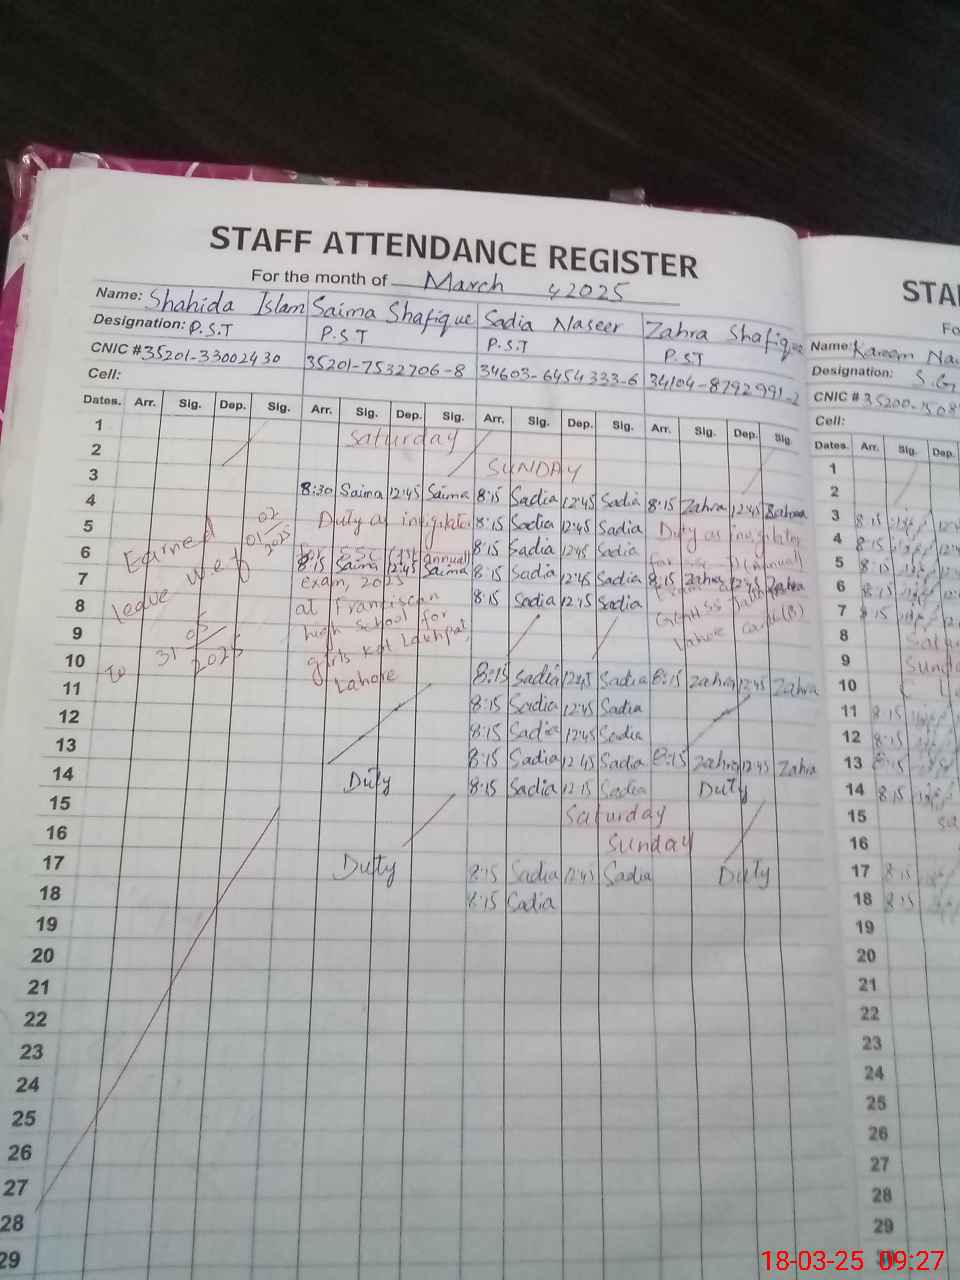 STAFF ATTENDANCE REGISTER
For the month of March 2025
Name: Shahida Islam Saima Shafique Sadia Naseer Zahra Shafique
Designation: P.S.T P.S.T P.S.T P.S.T
CNIC # 35201-33002430 35201-7532706-8 34603-6454333-6 34104-8792991-2
Cell:
Dates. Arr. Sig. Dep. Sig. Arr. Sig. Dep. Sig. Arr. Sig. Dep. Sig. Arr. Sig. Dep. Sig.
1 Saturday
2 SUNDAY
3 8:30 Saima 12:45 Saima 8:15 Sadia 12:45 Sadia 8:15 Zahra 12:45 Zahra
4 Duty as 8:15 Sadia 12:45 Sadia Duty as
5 8:15 Sadia 12:45 Sadia
6 8:15 Saima 12:45 Saima 8:15 Sadia 12:45 Sadia 8:15 Zahra 12:45 Zahra
7 exam, 2025 8:15 Sadia 12:45 Sadia
8 at Franciscan
9 high school for
10 girls Kot Lakhpat 8:15 Sadia 12:45 Sadia 8:15 Zahra 12:45 Zahra
11 Lahore 8:15 Sadia 12:45 Sadia
12 8:15 Sadia 12:45 Sadia
13 8:15 Sadia 12:45 Sadia 8:15 Zahra 12:45 Zahra
14 Duty 8:15 Sadia 12:15 Sadia Duty
15 Saturday
16 Sunday
17 Duty 8:15 Sadia 12:45 Sadia Duty
18 8:15 Sadia
19
20
21
22
23
24
25
26
27
28
29
Earned
leave w.e.f 01-02-2025
to 31 03 2025
STA
Fo
Name: Kareem Na
Designation: S.G
CNIC # 35200-1508
Cell:
Dates. Arr. Sig. Dep.
1
2
3 8:15
4 8:15
5 8:10
6 8:15
7 8:15
8
9 Sund
10
11 8:15
12 8:15
13 8:15
14 8:15
15 Sa
16
17 8:15
18 8:15
19
20
21
22
23
24
25
26
27
28
29
30
18-03-25 09:27